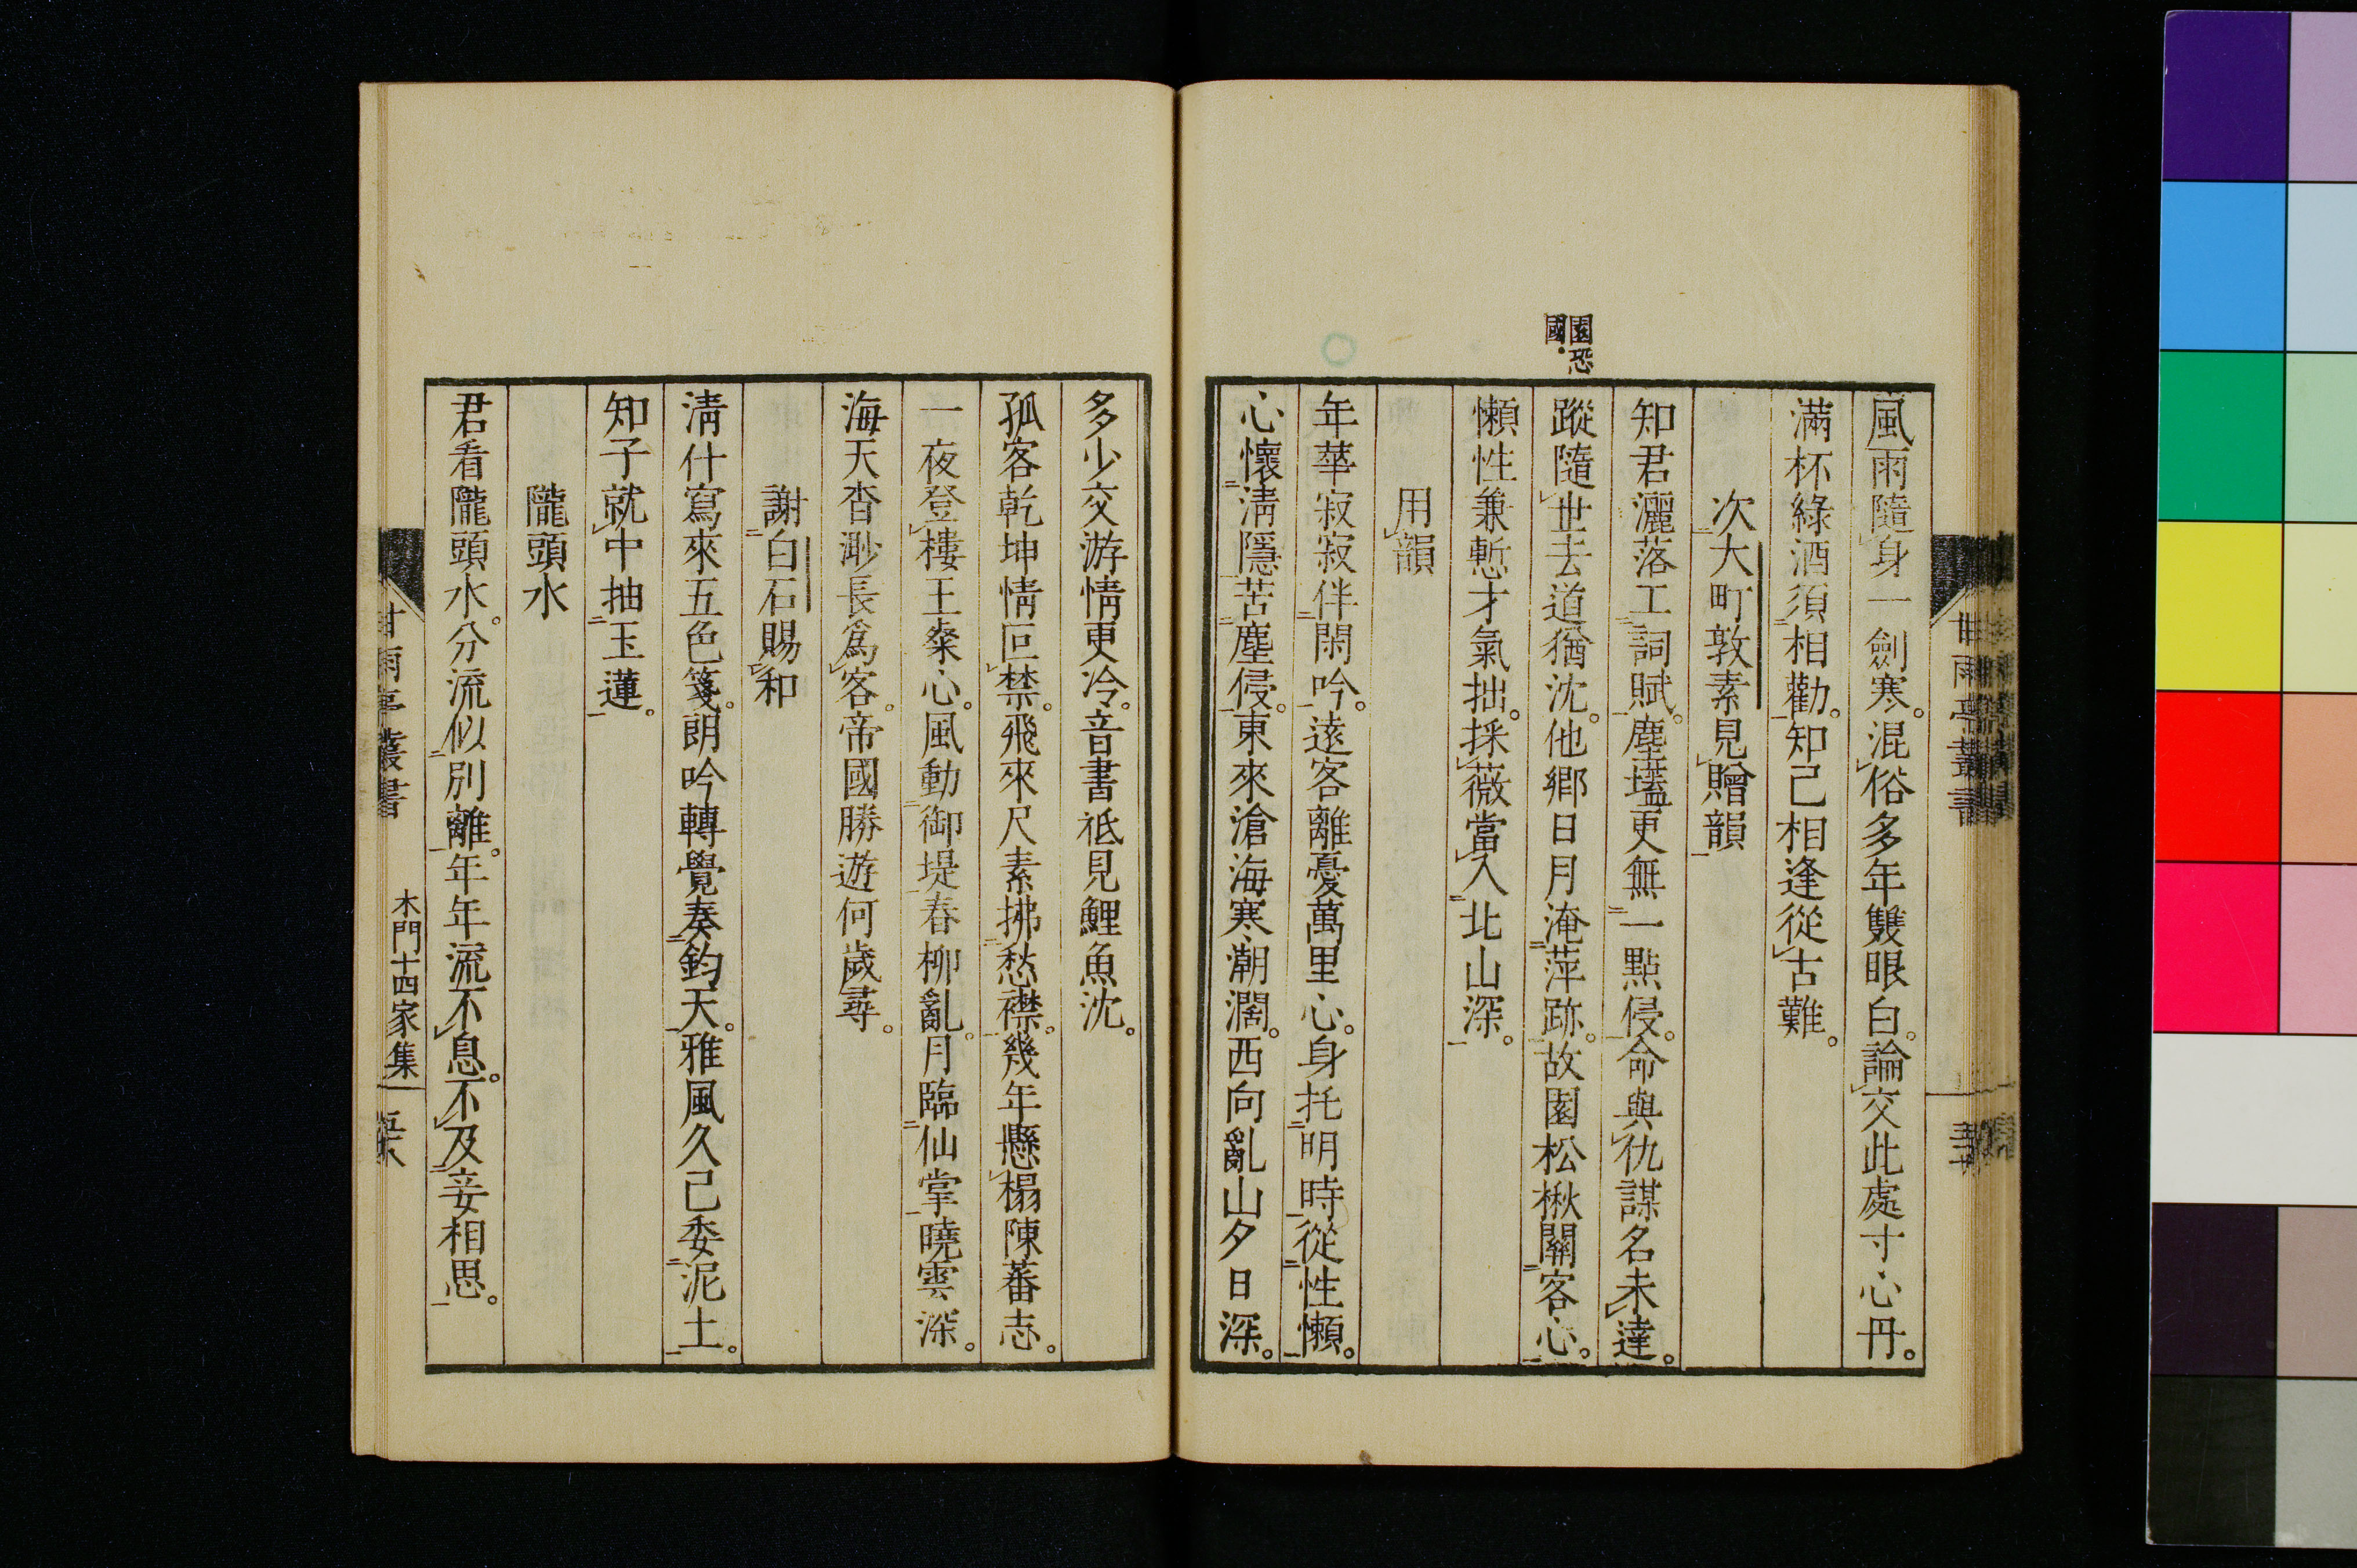 園恐
國
風雨隨身一劍寒。混俗多年雙眼白。論交此處寸心丹。
滿杯綠酒須相勸。知己相逢從古難。
次大町敦素見贈韻
知君灑落工詞賦。塵壒更無一點侵。命與仇謀名未達。
蹤隨世去道猶沈。他鄉日月淹萍跡。故園松楸關客心。
懶性兼慙才氣拙。採薇當入北山深。
用韻
年華寂寂伴閑吟。遠客離憂萬里心。身托明時從性懶。
心懷淸隱苦塵侵。東來滄海寒潮濶。西向亂山夕日深。
甘雨亭叢書
多少交游情更冷。音書祗見鯉魚沈。
孤客乾坤情叵禁。飛來尺素拂愁襟。幾年懸榻陳蕃志。
一夜登樓王粲心。風動御堤春柳亂。月臨仙掌曉雲深。
海天杳渺長爲客。帝國勝遊何歲尋。
謝白石賜和
淸什寫來五色箋。朗吟轉覺奏鈞天。雅風久已委泥土。
知子就中抽玉蓮。
隴頭水
君看隴頭水。分流似別離。年年流不息。不及妾相思。
甘雨亭叢書
木門十四家集